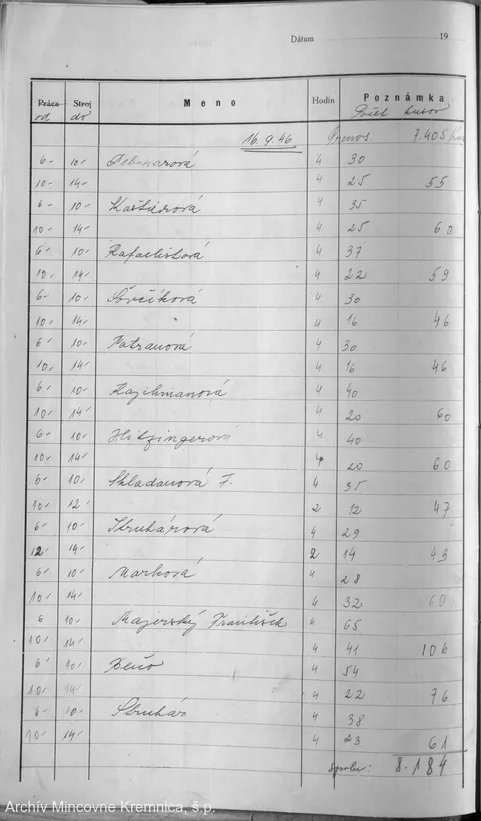 Dátum 19
Práca Stroj Meno Hodin Poznámka
od do Počet kusov
16. 9. 46 Prenos: 7.405 kus
6- 10- Debnarová 4 30
10- 14- 4 25 55
6- 10- Kaštierová 4 35
10- 14- 4 25 60
6- 10- Rafaelisová 4 37
10- 14- 4 22 59
6- 10- Ševčíková 4 30
10- 14- 4 16 46
6- 10- Patranová 4 30
10- 14- 4 16 46
6- 10- Rajchmanová 4 40
10- 14- 4 20 60
6- 10- Hitzingerová 4 40
10- 14- 4 20 60
6- 10- Skladanová F. 4 35
10- 12- 2 12 47
6- 10- Struhárová 4 29
12- 14- 2 14 43
6- 10- Marková 4 28
10- 14- 4 32 60
6 10- Majerský František 4 65
10- 14- 4 41 106
6- 10- Beňo 4 54
10- 14- 4 22 76
6- 10- Struhár 4 38
10- 14- 4 23 61
Spolu: 8.184
Archív Mincovne Kremnica, š.p.